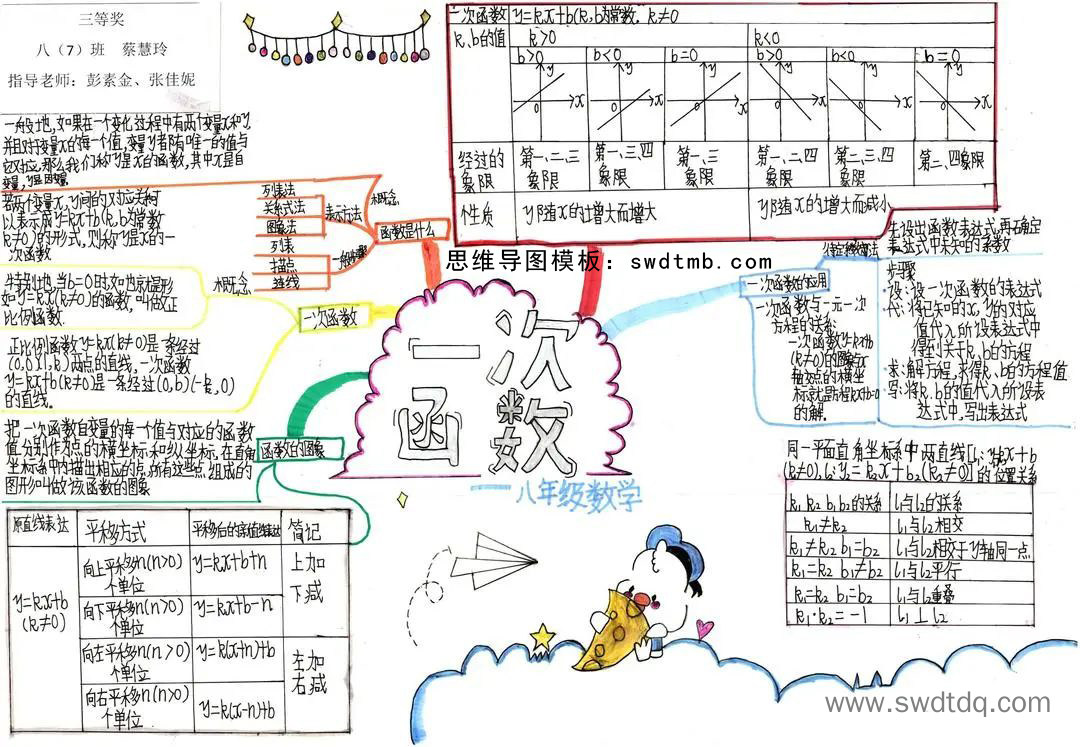 三等奖
八（7）班 蔡慧玲
指导老师：彭素金、张佳妮
一般地,如果在一个变化过程中有两个变量x和y,
并且对于变量x的每一个值,变量y都有唯一的值与
它对应,那么我们称y是x的函数,其中x是自
变量,y是因变量.
若两个变量x,y间的对应关系可
以表示成y=kx+b(k,b为常数
k≠0)的形式,则称y是x的一
次函数
特别地,当b=0时,
如y=kx(k≠0)的函数,叫做正
比例函数.
正比例函数y=kx(k≠0)是一条经过
(0,0)(1,k)两点的直线,一次函数
y=kx+b(k≠0)是一条经过(0,b)
的直线.
把一次函数自变量的每一个值与对应的函数
值分别作为点的横坐标和纵坐标,在直角
坐标系中内描出相应的点,所有这些点组成的
图形叫做该函数的图象
概念
列表法
关系式法
图象法
表示方法
列表
描点
连线
一般步骤
函数是什么
概念
一次函数
函数的图象
一次函数 y=kx+b(k,b为常数.k≠0
k、b的值 k>0 k<0
b>0 b<0 b=0 b>0 b<0 b=0
y y y y y y
0 x 0 x 0 x 0 x 0 x 0 x
经过的象限 第一、二、三象限 第一、三、四象限 第一、三象限 第一、二、四象限 第二、三、四象限 第二、四象限
性质 y随x的增大而增大 y随x的增大而减小
思维导图模板：swdtmb.com
一次
函数
——八年级数学
一次函数的应用
待定系数法
先设出函数表达式,再确定
表达式中未知的系数
步骤
·设:设一次函数的表达式
·代:将已知的x,y的对应
值代入所设表达式中
得到关于k、b的方程
·求:解方程,求得k、b的方程值
·写:将k、b的值代入所设表
达式中,写出表达式
一次函数与一元一次
方程的关系:
一次函数y=kx+b
(k≠0)的图象与x
轴交点的横坐
标就是方程kx+b=0
的解.
同一平面直角坐标系中两直线[l₁:y=k₁x+b
(k≠0),l₂:y₂=k₂x+b₂(k₂≠0)]的位置关系
k₁ k₂ b₁ b₂的关系 l₁与l₂的关系
k₁≠k₂ l₁与l₂相交
k₁≠k₂ b₁=b₂ l₁与l₂相交于y轴同一点
k₁=k₂ b₁≠b₂ l₁与l₂平行
k₁=k₂ b₁=b₂ l₁与l₂重叠
k₁·k₂=-1 l₁⊥l₂
原直线表达 平移方式 简记
y=kx+b
(k≠0)
向上平移n(n>0)个单位 y=kx+b+n 上加
向下平移n(n>0)个单位 y=kx+b-n 下减
向左平移n(n>0)个单位 y=k(x+n)+b 左加
向右平移n(n>0)个单位 y=k(x-n)+b 右减
www.swdtdq.com